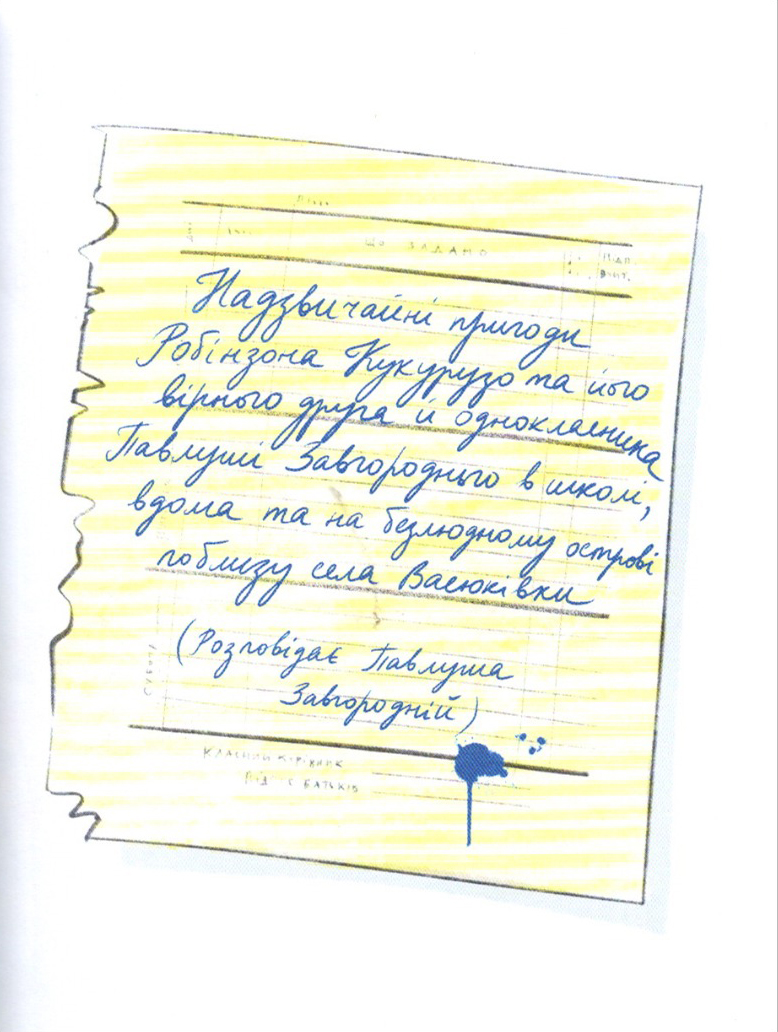 ЩО ЗАДАНО
Надзвичайні пригоди
Робінзона Кукурузо та його
вірного друга й однокласника
Павлуші Завгороднього в школі,
вдома та на безлюдному острові
поблизу села Васюківки
(Розповідає Павлуша
Завгородній)
СУБОТА
КЛАСНИЙ КЕРІВНИК
БАТЬКІВ